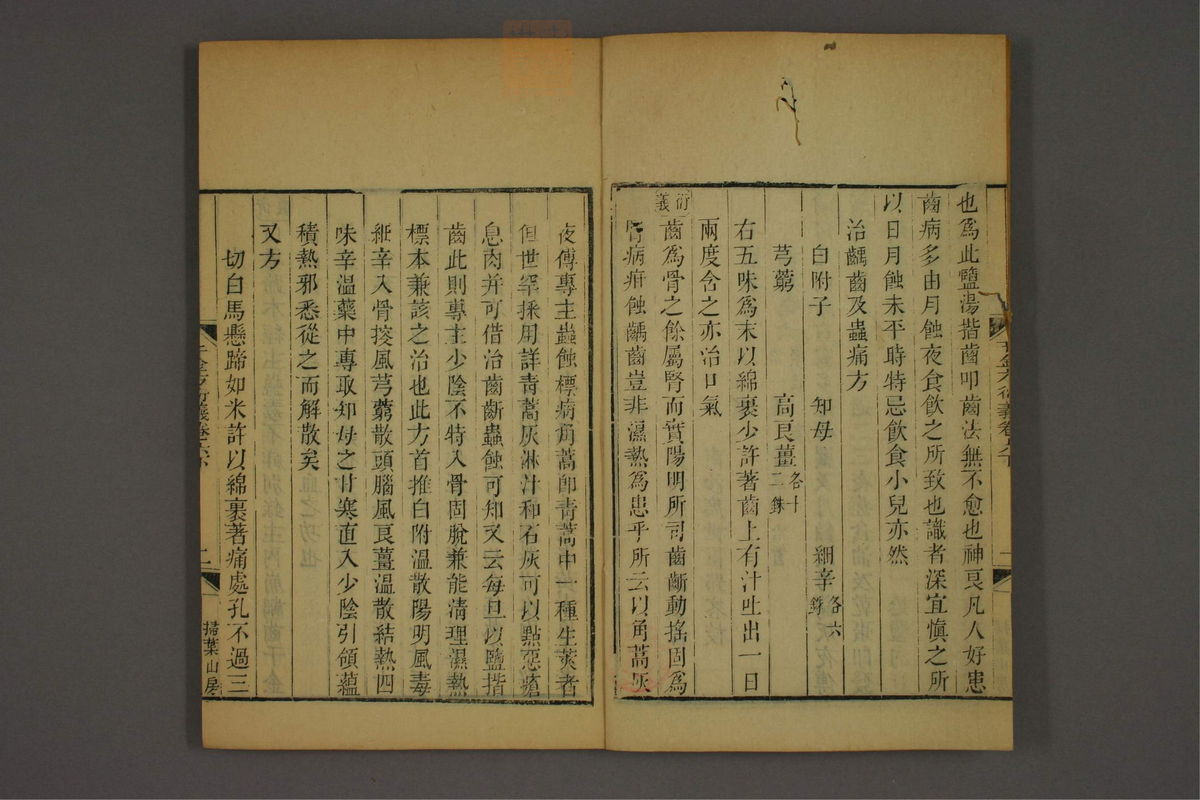 也爲此鹽湯揩齒叩齒法無不愈也神良凡人好患
齒病多由月蝕夜食飲之所致也識者深宜愼之所
以日月蝕未平時特忌飲食小兒亦然
治齲齒及蟲痛方
白附子 知母 細辛各六銖
芎藭 高良薑各十二銖
右五味爲末以綿裹少許著齒上有汁吐出一日
兩度含之亦治口氣
衍義
齒爲骨之餘屬腎而實陽明所司齒齗動搖固爲
腎病疳蝕齲齒豈非濕熱爲患乎所云以角蒿灰
夜傅專主蟲蝕標病角蒿卽青蒿中一種生莢者
但世罕採用詳青蒿灰淋汁和石灰可以點惡瘡
息肉并可借治齒齗蟲蝕可知又云每旦以鹽揩
齒此則專主少陰不特入骨固脫兼能清理濕熱
標本兼該之治也此方首推白附溫散陽明風毒
細辛入骨搜風芎藭散頭腦風良薑溫散結熱四
味辛溫藥中專取知母之甘寒直入少陰引領蘊
積熱邪悉從之而解散矣
又方
切白馬懸蹄如米許以綿裹著痛處孔不過三
千金方衍義卷六下
二
掃葉山房